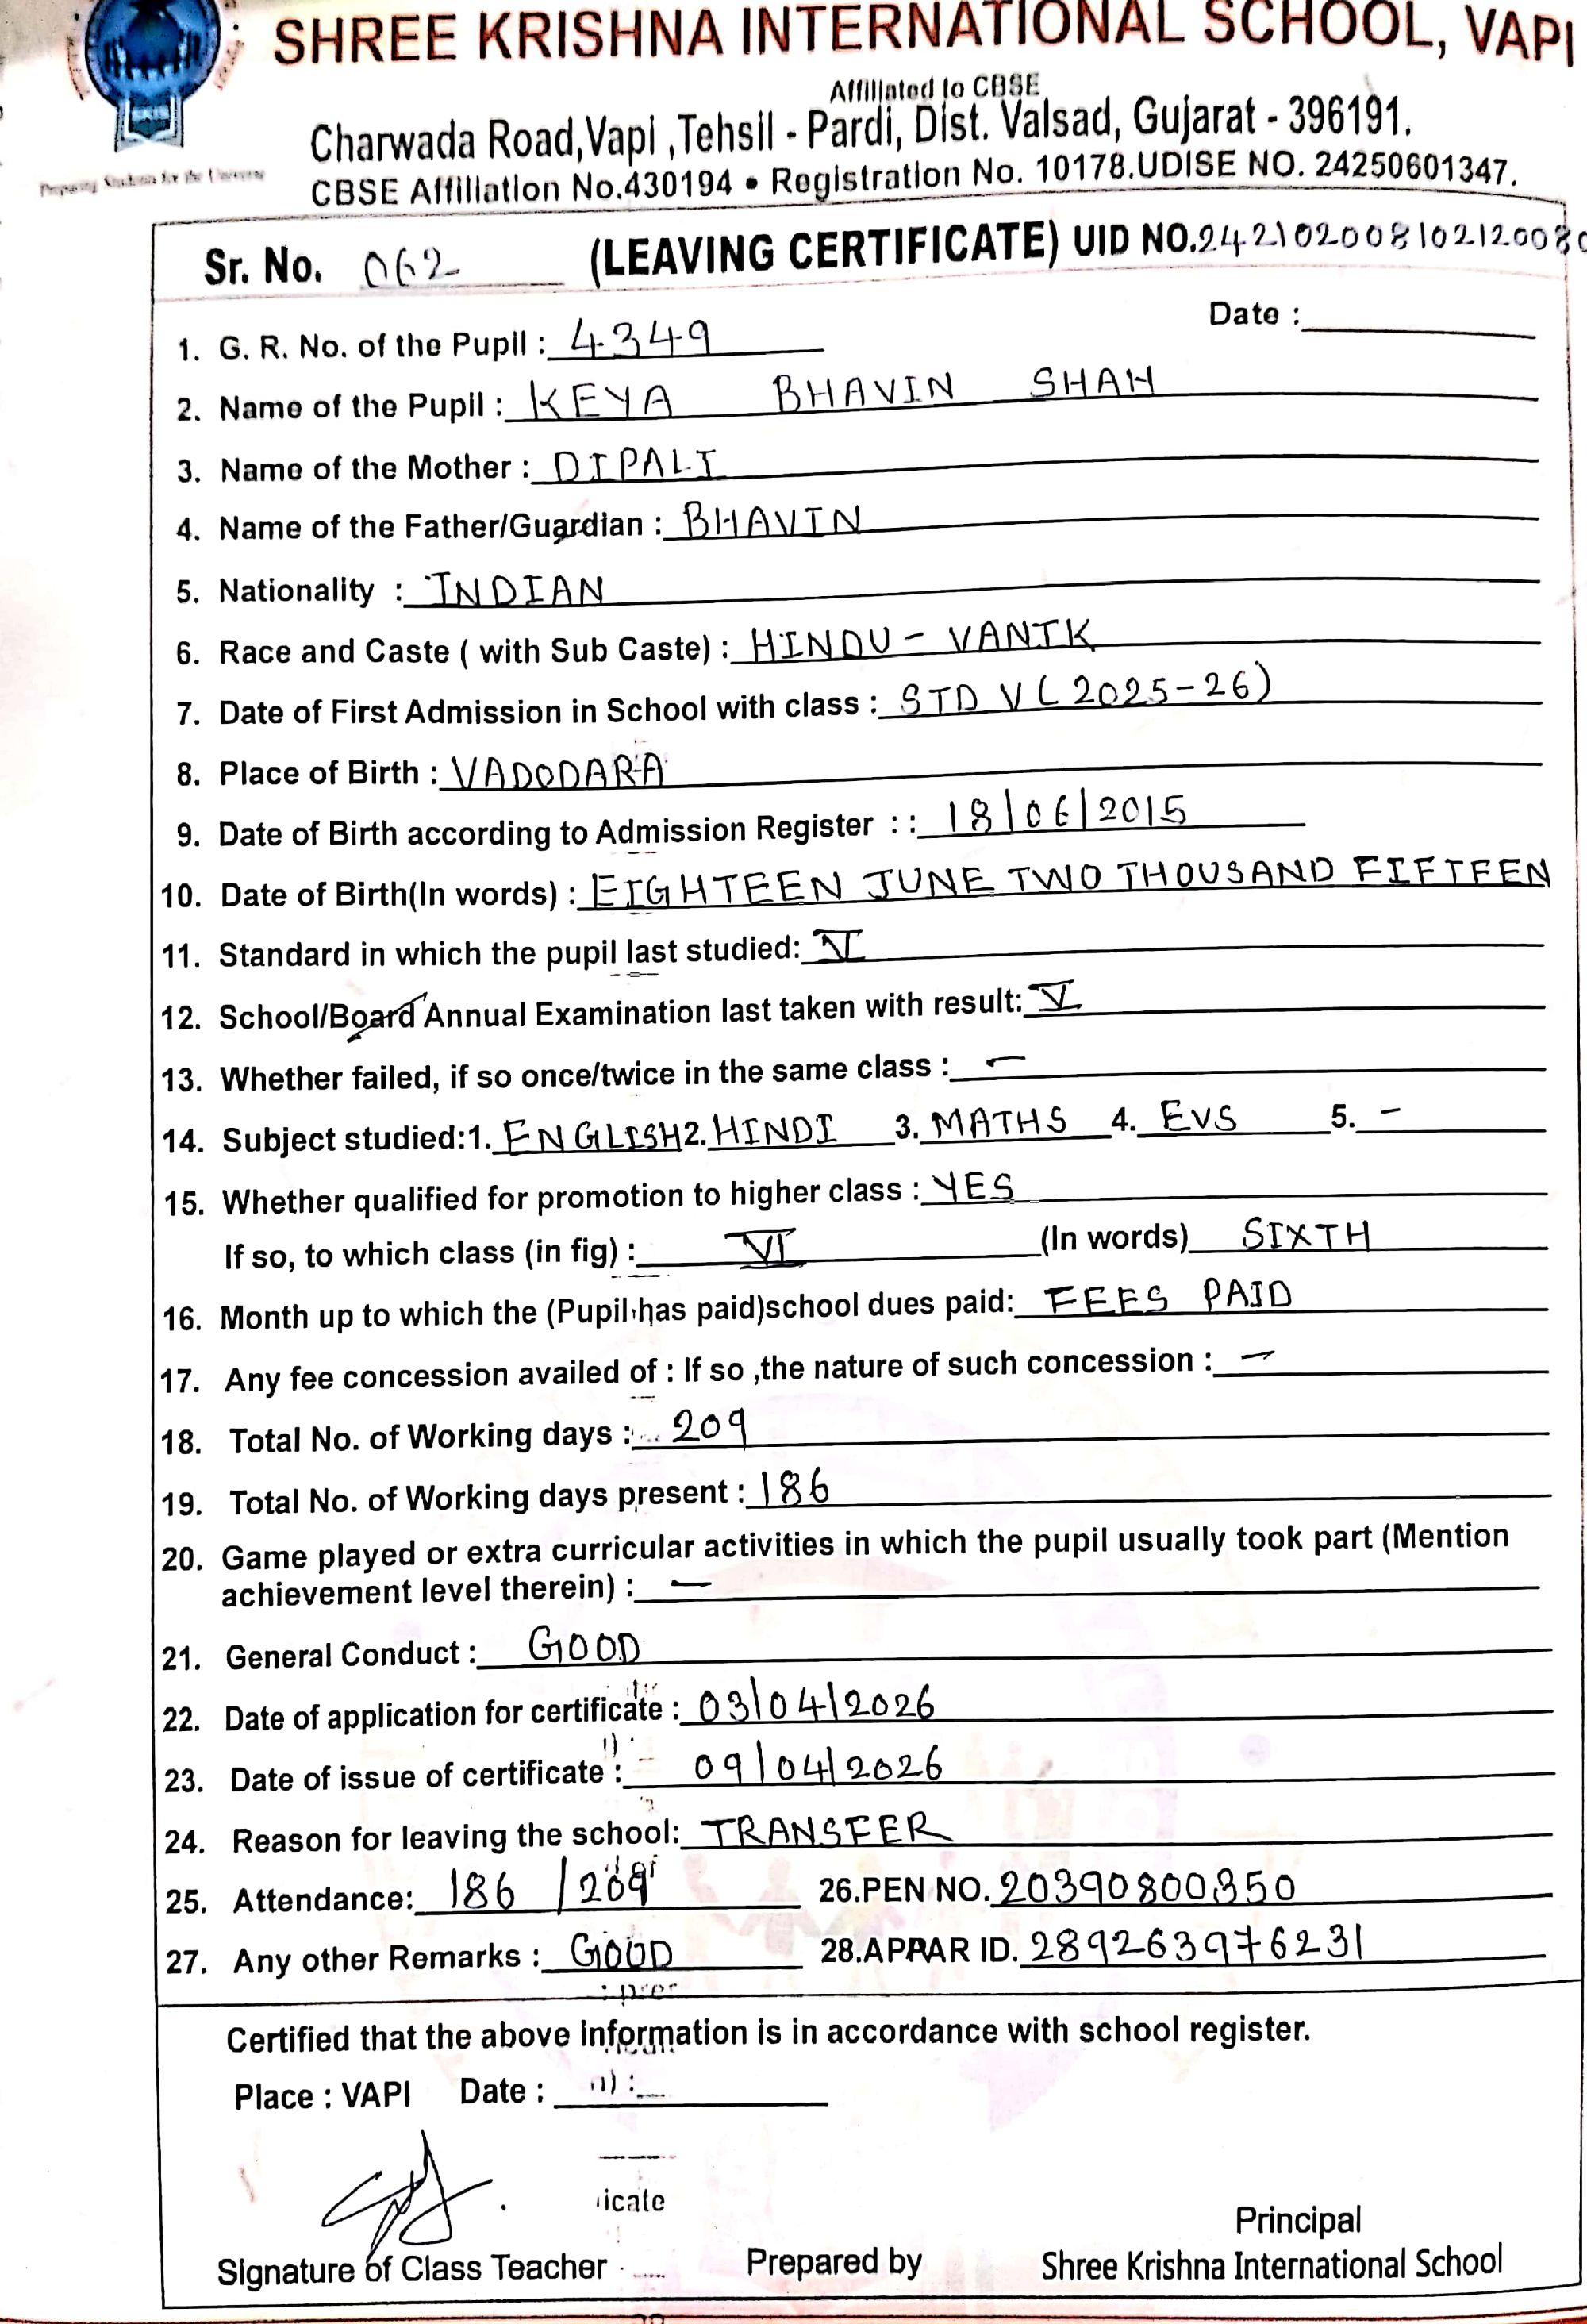 SHREE KRISHNA INTERNATIONAL SCHOOL, VAPI
Affiliated to CBSE
Charwada Road,Vapi ,Tehsil - Pardi, Dist. Valsad, Gujarat - 396191.
Preparing Students for the Universe
CBSE Affiliation No.430194 • Registration No. 10178.UDISE NO. 24250601347.
Sr. No. 062 (LEAVING CERTIFICATE) UID NO.242102008102120080
Date :
1. G. R. No. of the Pupil : 4349
2. Name of the Pupil : KEYA BHAVIN SHAH
3. Name of the Mother : DIPALI
4. Name of the Father/Guardian : BHAVIN
5. Nationality : INDIAN
6. Race and Caste ( with Sub Caste) : HINDU - VANIK
7. Date of First Admission in School with class : STD V ( 2025-26)
8. Place of Birth : VADODARA
9. Date of Birth according to Admission Register : : 18/06/2015
10. Date of Birth(In words) : EIGHTEEN JUNE TWO THOUSAND FIFTEEN
11. Standard in which the pupil last studied: V
12. School/Board Annual Examination last taken with result: V
13. Whether failed, if so once/twice in the same class : -
14. Subject studied:1. ENGLISH 2. HINDI 3. MATHS 4. EVS 5. -
15. Whether qualified for promotion to higher class : YES
If so, to which class (in fig) : VI (In words) SIXTH
16. Month up to which the (Pupil has paid)school dues paid: FEES PAID
17. Any fee concession availed of : If so ,the nature of such concession : -
18. Total No. of Working days : 209
19. Total No. of Working days present : 186
20. Game played or extra curricular activities in which the pupil usually took part (Mention
achievement level therein) : -
21. General Conduct : GOOD
22. Date of application for certificate : 03/04/2026
23. Date of issue of certificate : 09/04/2026
24. Reason for leaving the school: TRANSFER
25. Attendance: 186 / 209 26.PEN NO. 20390800350
27. Any other Remarks : GOOD 28.APPAR ID. 289263976231
Certified that the above information is in accordance with school register.
Place : VAPI Date :
icate
Principal
Signature of Class Teacher Prepared by Shree Krishna International School